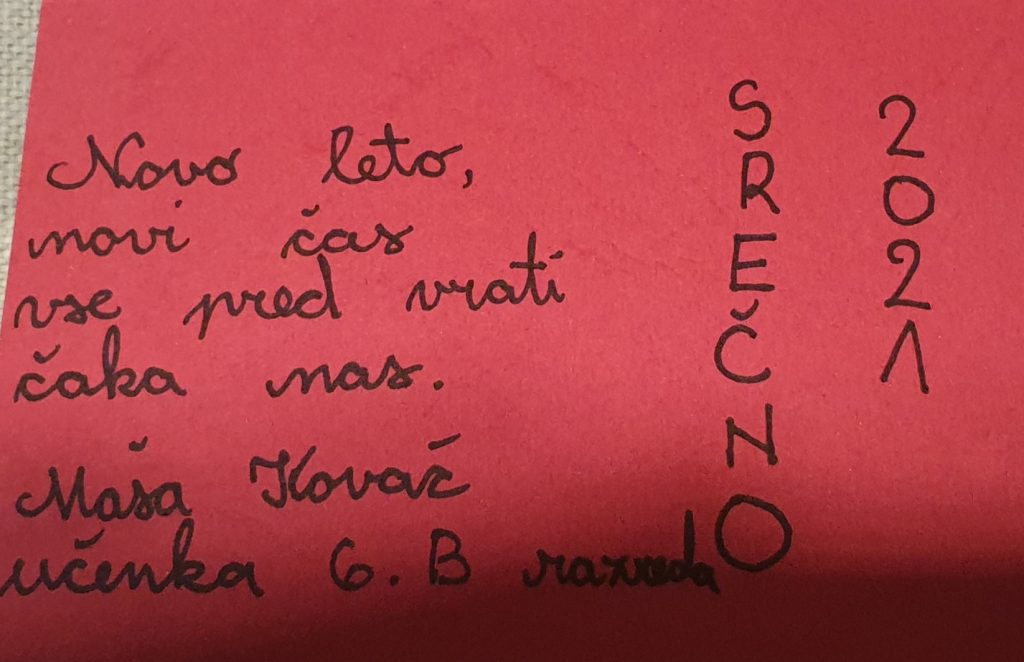 Novo leto,
novi čas
vse pred vrati
čaka nas.
Maša Kovač
učenka 6. B razreda
SREČNO
2021